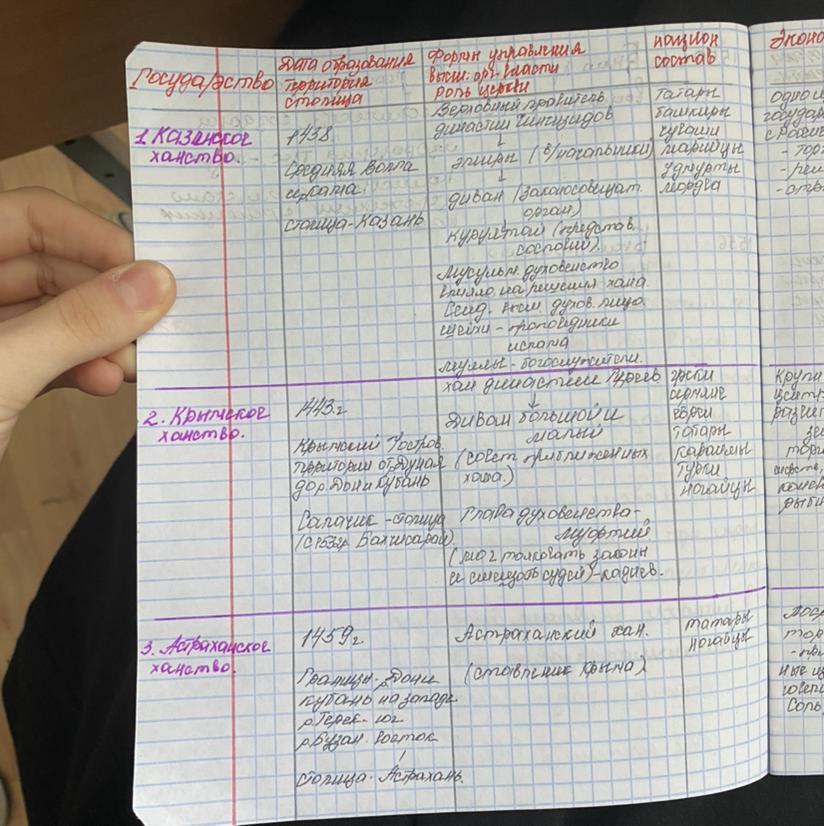 Государство
Дата образования
территория
столица
Формы управления
высш. орг. власти
роль церкви
национ
состав
Эконо
1. Казанское
ханство.
1438
Средняя Волга
и р. Кама.
столица - Казань
Верховный правитель
династии Чингизидов
↓
эмиры (в/начальники)
↓
диван (законосовещат.
орган)
курултай (представ.
сословий).
Мусульм. духовенство
влияло на решения хана.
Сеид. высш. духов. лицо.
шейхи - проповедники
ислама
муллы - богослужители.
татары
башкиры
чуваши
марийцы
удмурты
мордва
одно и
государ
с Росси
- тор
- ре
- отр
2. Крымское
ханство.
1443г.
Крымский п-остров.
территории от р. Дуная
до р. Дон и Кубань
Салачик - столица
(с 1532г. Бахчисарай).
хан династии Гиреев
↓
диван большой и
малый
(совет приближенных
хана.)
Глава духовенства -
муфтий
(мог толковать законы
и смещать судей) - кадиев.
греки
армяне
евреи
татары
караимы
турки
ногайцы
Крупн
центр
развит
зе
торг
шерсть,
рыби
3. Астраханское
ханство.
1459г.
Границы - р. Дон и
Кубань на западе
р. Терек - юг
р. Бузан - восток
столица - Астрахань.
Астраханский хан.
(ставленник Крыма)
татары
ногайцы
пос
тор
ные
Соль,